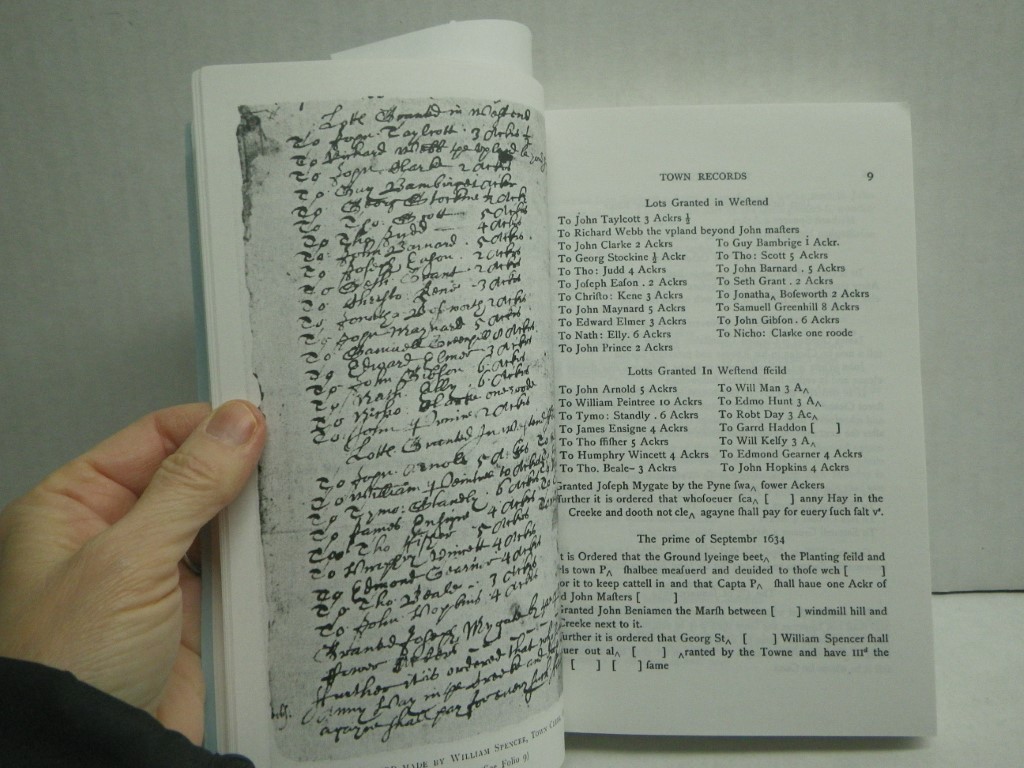 Lotts Granted in Westend
To John Taylcott 3 Ackrs ½
To John Clark 2 Ackrs
To Guy Bambrige 1 Acker
To Georg Stockine ½ Ack
To Tho: Scott 5 Ackrs
To Tho: Judd 4 Ackrs
To John Barnard . 5 Ackrs
To Joseph Eason . 2 Ackrs
To Seth Grant . 2 Ackrs
To Christo: Kene 3 Ackrs
To Jonatha Bosworth 2 Ackrs
To John Maynard 5 Ackrs
To Samuell Greenhill 8 Ackrs
To Edward Elmer 3 Ackrs
To John Gibson 6 Ackrs
To Nath: Elly . 6 Ackrs
To Nicho: Clarke one roode
To John Prince 2 Ackrs
Lotts Granted In Westend
To John Arnold 5 A
To William Peintree 10 Ackrs
To Tymo: Standly . 6 Ackrs
To James Ensigne 4 Ackrs
To Tho ffisher 5 Ackrs
To Humpry Wincett 4 Ackrs
To Edmond Gearner 4 Ackrs
To Tho. Beale – 3 Ackrs
To John Hopkins 4 Ackrs
Granted Joseph Mygate by
fower Ackers
further it is ordered that
Anny Hay in the Creeke and
agayne shall pay for euery such
MADE BY WILLIAM SPENCER, TOWN
Folio 9)
TOWN RECORDS 9
Lots Granted in Weſtend
To John Taylcott 3 Ackrs ½
To Richard Webb the vpland beyond John maſters
To John Clarke 2 Ackrs To Guy Bambrige i Ackr.
To Georg Stockine ½ Ackr To Tho: Scott 5 Ackrs
To Tho: Judd 4 Ackrs To John Barnard . 5 Ackrs
To Joſeph Eaſon . 2 Ackrs To Seth Grant . 2 Ackrs
To Chriſto: Kene 3 Ackrs To Jonatha‸ Boſeworth 2 Ackrs
To John Maynard 5 Ackrs To Samuell Greenhill 8 Ackrs
To Edward Elmer 3 Ackrs To John Gibſon . 6 Ackrs
To Nath: Elly. 6 Ackrs To Nicho: Clarke one roode
To John Prince 2 Ackrs
Lotts Granted In Weſtend ffeild
To John Arnold 5 Ackrs To Will Man 3 A‸
To William Peintree 10 Ackrs To Edmo Hunt 3 A‸
To Tymo: Standly . 6 Ackrs To Robt Day 3 Ac‸
To James Ensigne 4 Ackrs To Garrd Haddon [ ]
To Tho ffiſher 5 Ackrs To Will Kelſy 3 A‸
To Humphry Wincett 4 Ackrs To Edmond Gearner 4 Ackrs
To Tho. Beale– 3 Ackrs To John Hopkins 4 Ackrs
Granted Joſeph Mygate by the Pyne ſwa‸ fower Ackers
further it is ordered that whoſoeuer ſca‸ [ ] anny Hay in the
Creeke and dooth not cle‸ agayne ſhall pay for euery ſuch falt vᵈ.
The prime of Septembr 1634
t is Ordered that the Ground lyeinge beet‸ the Planting feild and
is town P‸ ſhalbee meaſuerd and deuided to thoſe wch [ ]
or it to keep cattell in and that Capta P‸ ſhall haue one Ackr of
d John Maſters [ ]
Granted John Beniamen the Marſh between [ ] windmill hill and
Creeke next to it.
further it is ordered that Georg St‸ [ ] William Spencer ſhall
uer out al‸ [ ] ‸ranted by the Towne and have IIIᵈ the
[ ] [ ] ſame